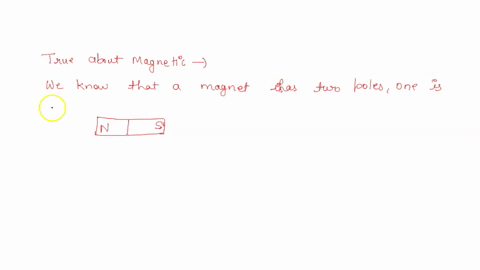 True about Magnetic →
We know that a magnet has two poles, one is
N S